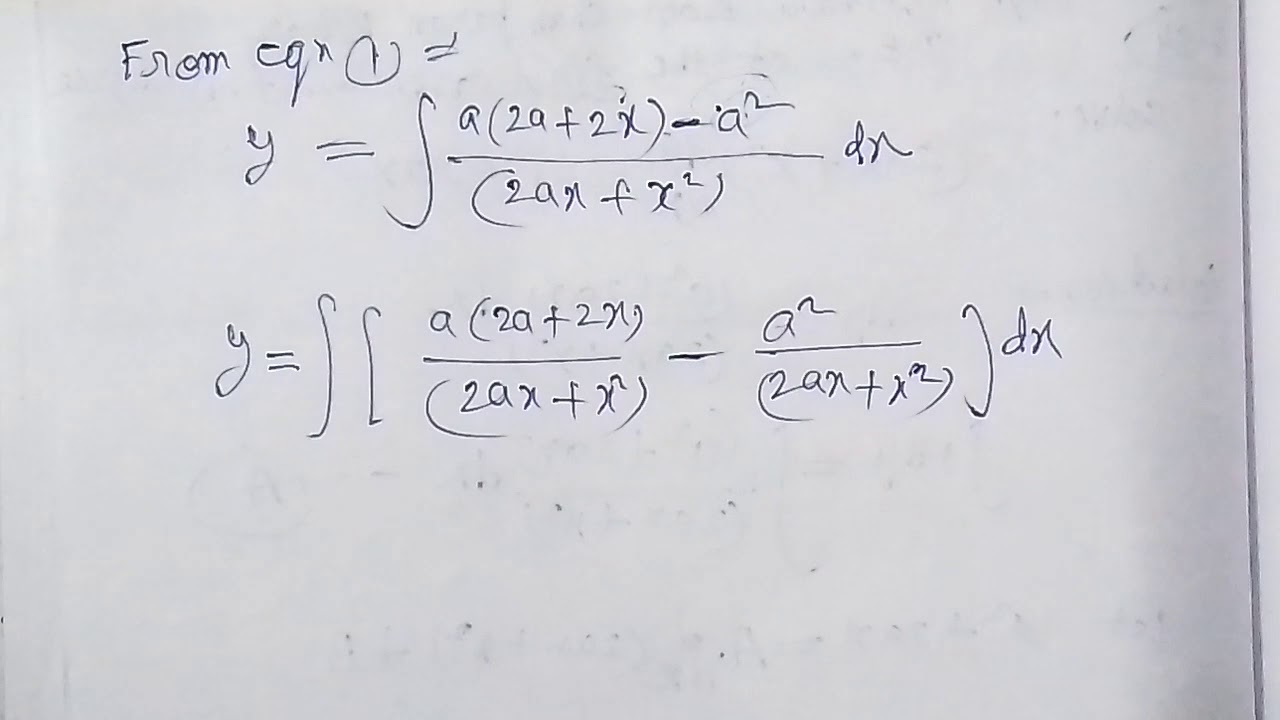 From eqn ① ⇒
y = ∫ a(2a+2x)-a² / (2ax+x²) dx
y = ∫ [ a(2a+2x) / (2ax+x²) - a² / (2ax+x²) ] dx